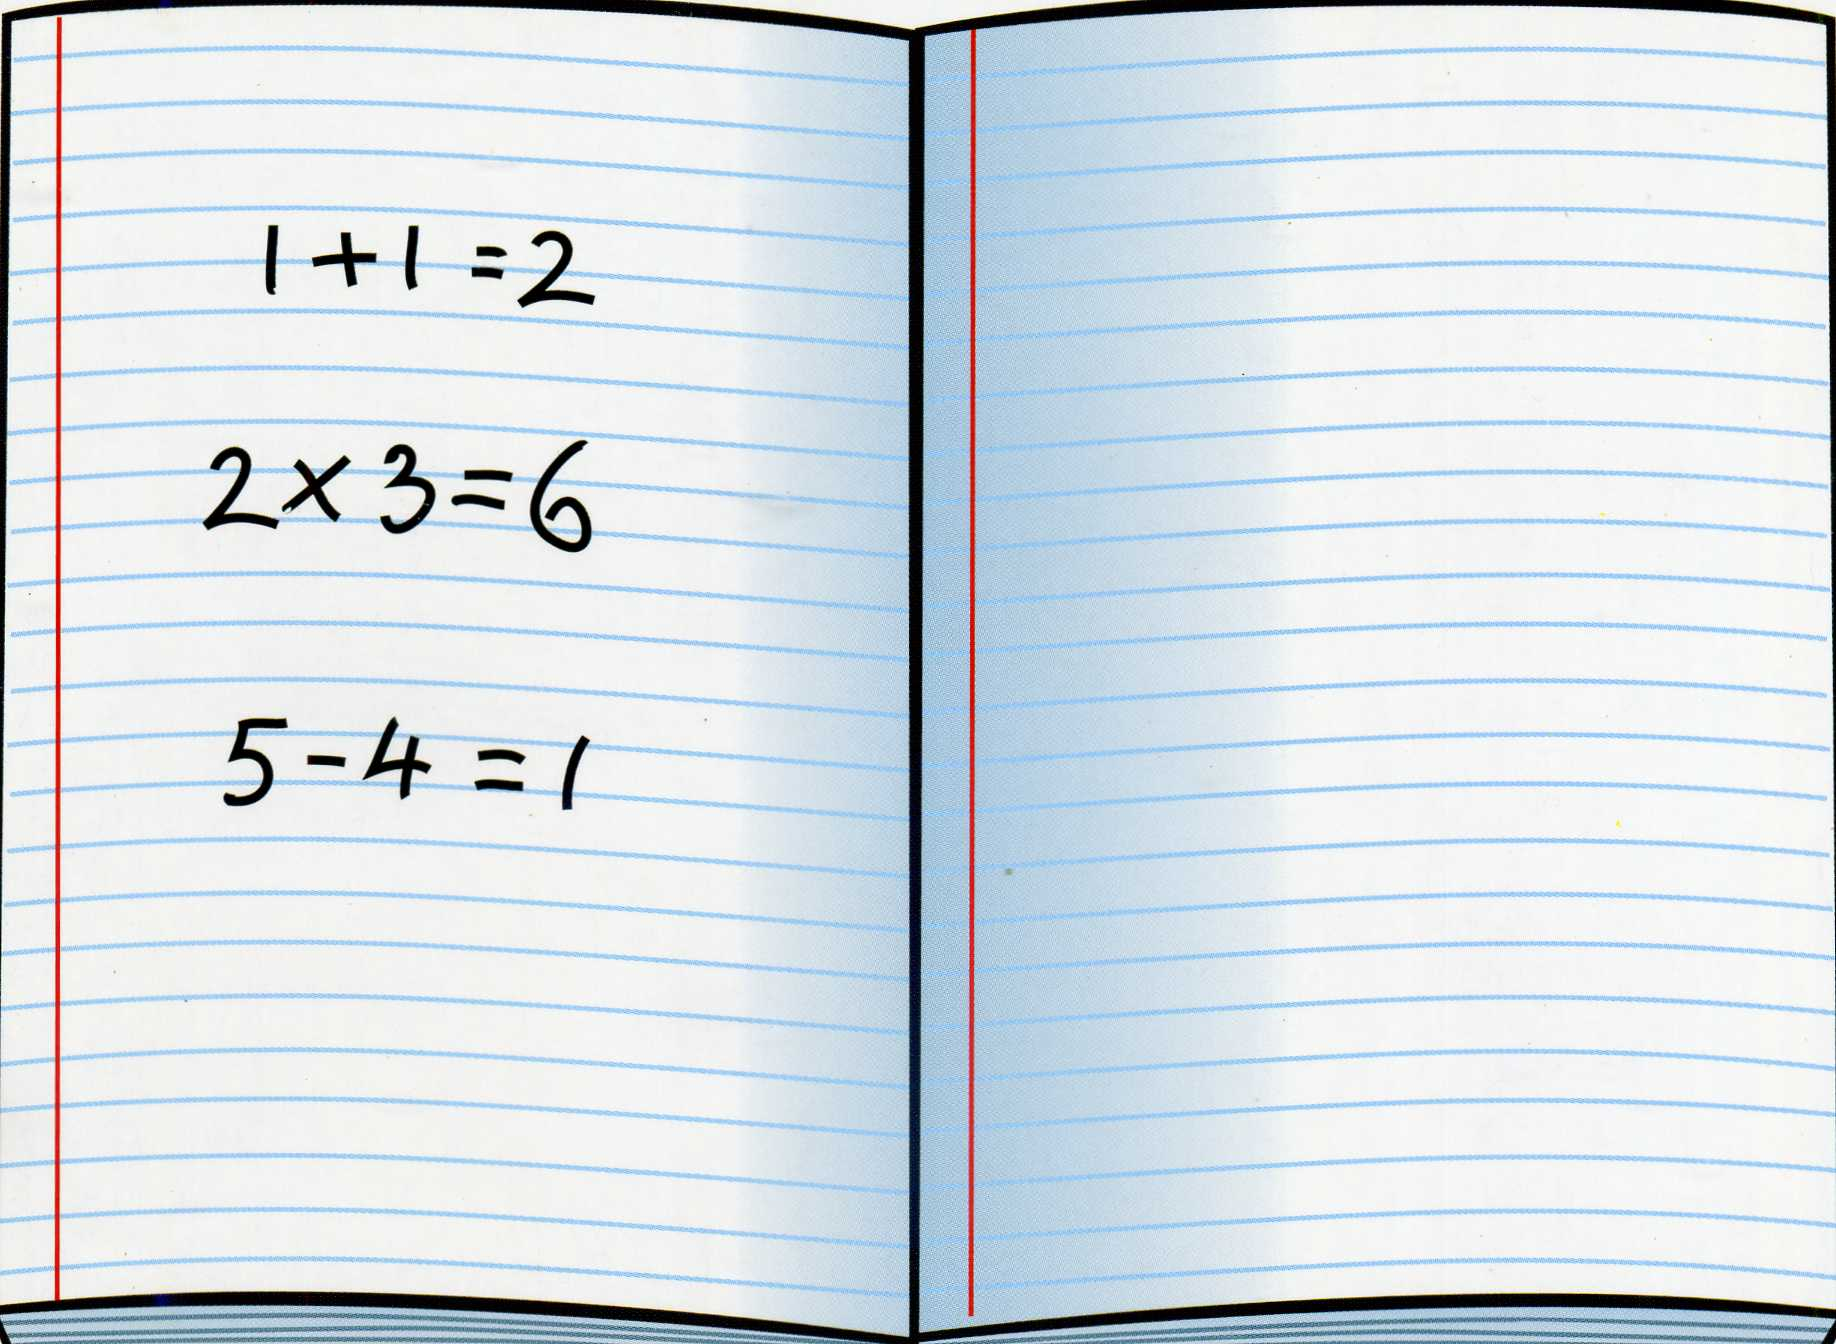 1+1=2
2×3=6
5-4=1